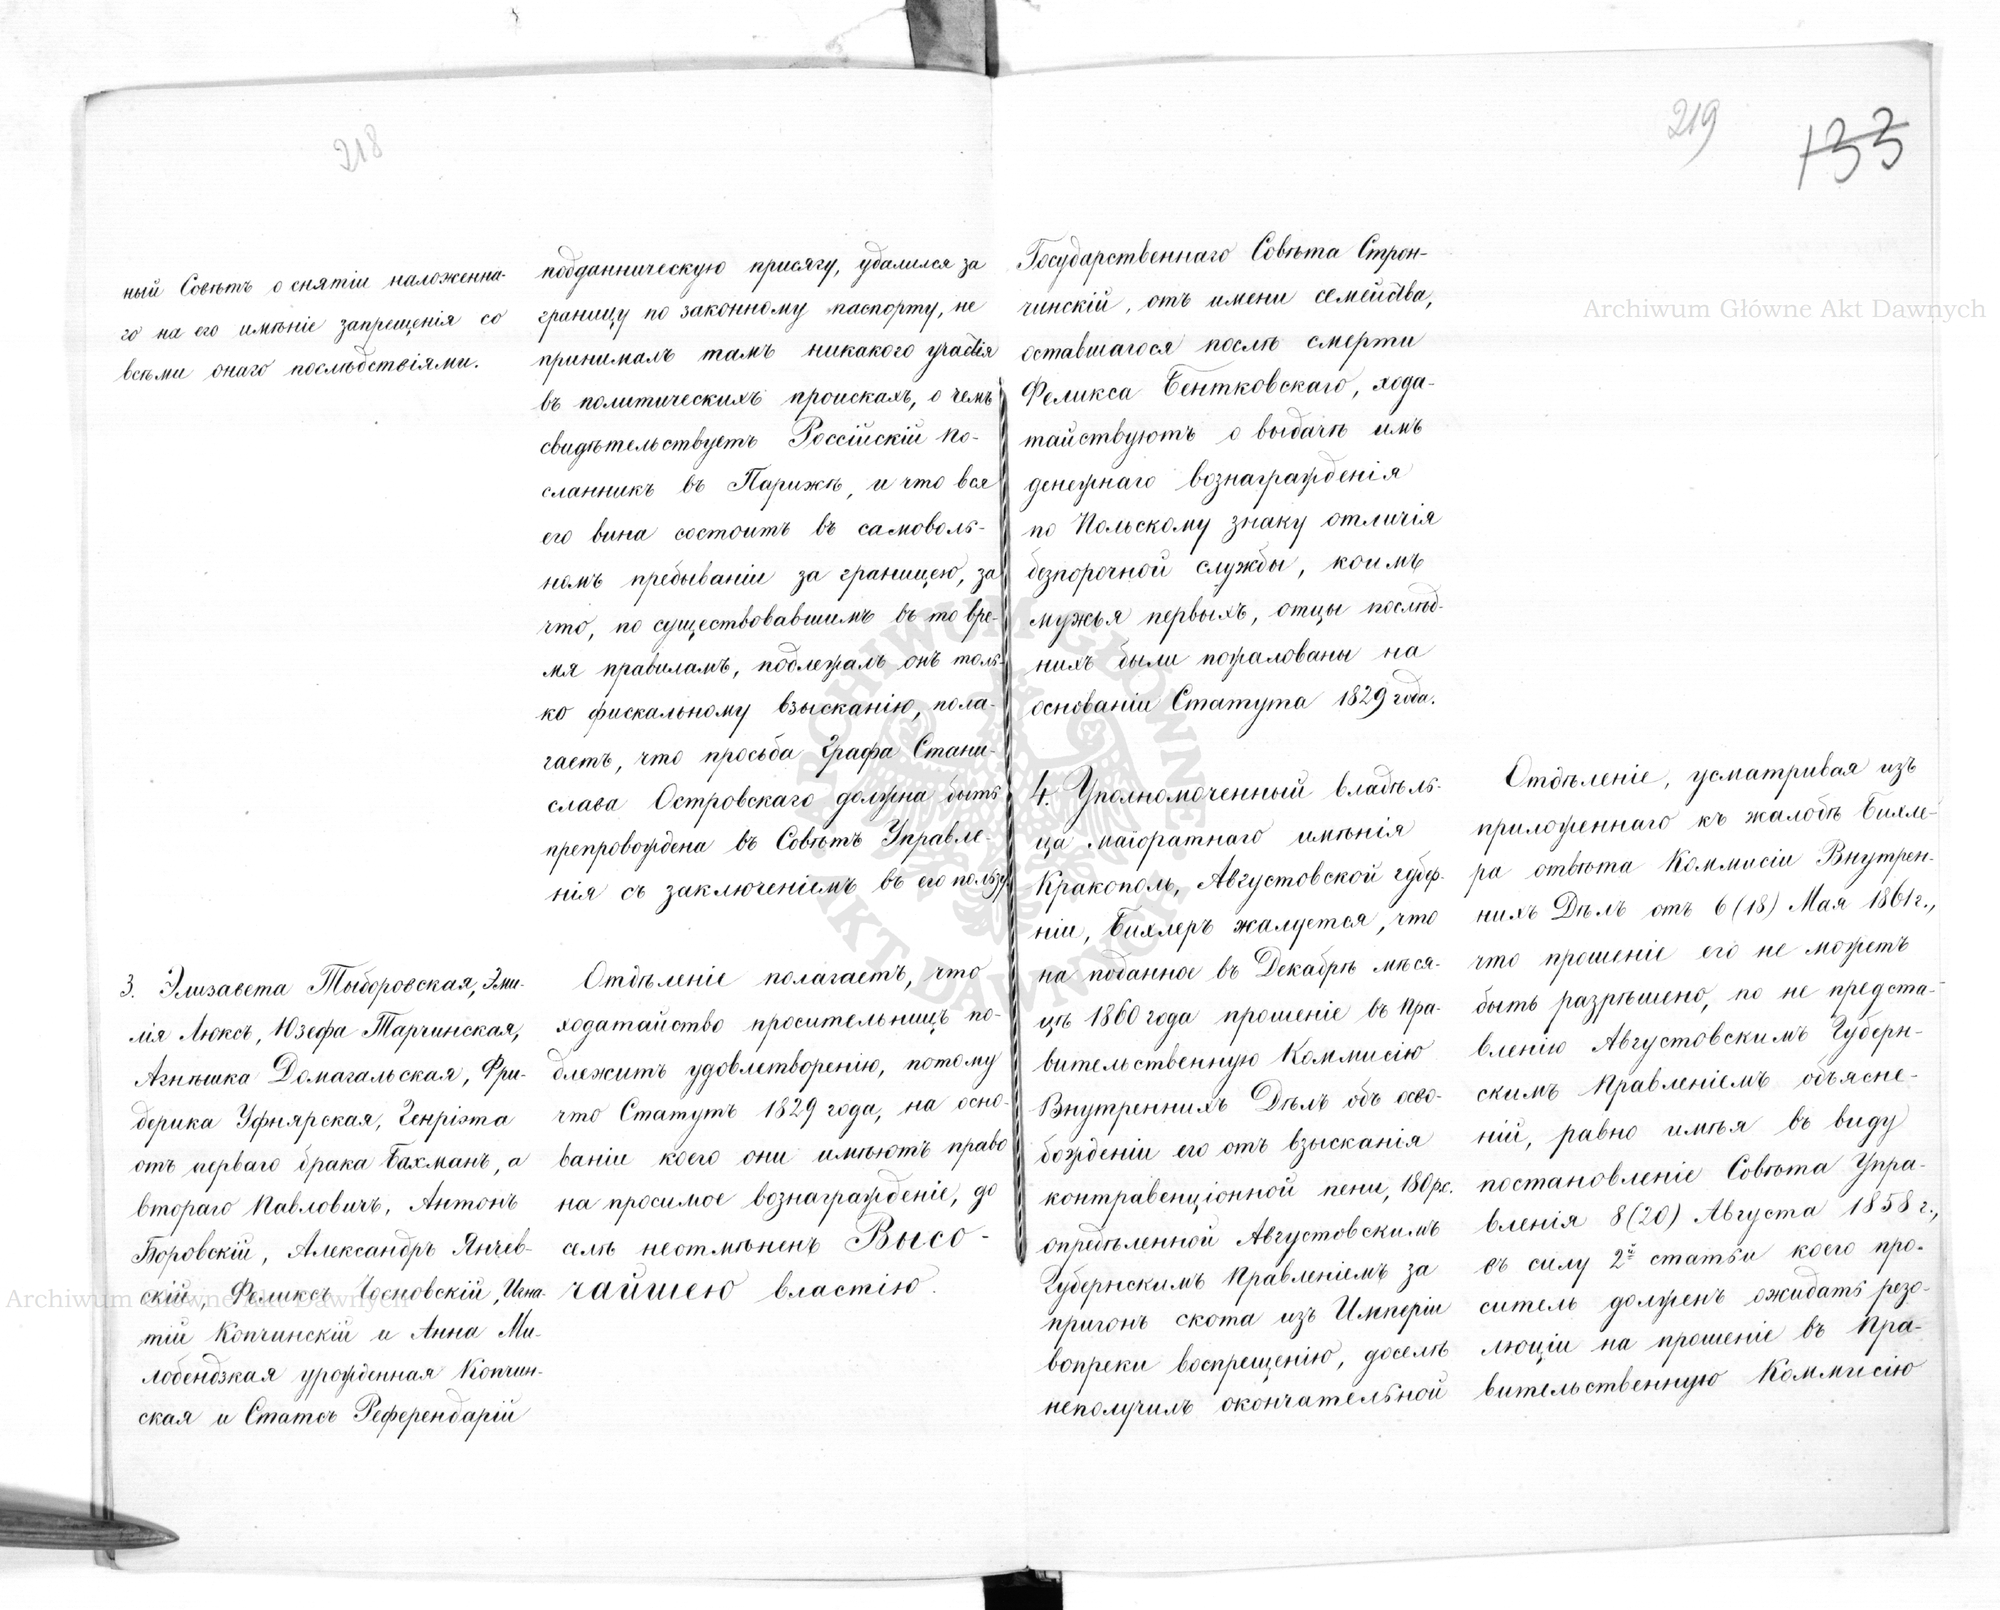 218
ный Совѣтъ о снятіи наложенна-
го на его имѣніе запрещенія со
всѣми онаго послѣдствіями.
3. Элизавета Тыборовская, Эми-
лія Люксъ, Юзефа Тарчинская,
Агнѣшка Домагальская, Фри-
дерика Уфнярская, Генріэта
отъ перваго брака Бахманъ, а
втораго Павловичъ, Антонъ
Боровскій, Александръ Янчев-
скій, Феликсъ Чосновскій, Игна-
тій Копчинскій и Анна Ми-
лобендзкая урожденная Копчин-
ская и Статсъ Референдарій
подданническую присягу, удалился за
границу по законному паспорту, не
принималъ тамъ никакого участія
въ политическихъ проискахъ, о чемъ
свидѣтельствуетъ Россійскій По-
сланникъ въ Парижѣ, и что вся
его вина состоитъ въ самоволь-
номъ пребываніи за границею, за
что, по существовавшимъ въ то вре-
мя правиламъ, подлежалъ онъ толь-
ко фискальному взысканію, пола-
гаетъ, что просьба Графа Стани-
слава Островскаго должна быть
препровождена въ Совѣтъ Управле-
нія съ заключеніемъ въ его пользу.
Отдѣленіе полагаетъ, что
ходатайство просительницъ по-
длежитъ удовлетворенію, потому
что Статутъ 1829 года, на осно-
ваніи коего они имѣютъ право
на просимое вознагражденіе, до
селѣ неотмѣненъ Высо-
чайшею властію.
219
133
Государственнаго Совѣта Строн-
чинскій, отъ имени семейства,
оставшагося послѣ смерти
Феликса Бентковскаго, хода-
тайствуютъ о выдачѣ имъ
денежнаго вознагражденія
по Польскому знаку отличія
безпорочной службы, коимъ
мужья первыхъ, отцы послѣд-
нихъ были пожалованы на
основаніи Статута 1829 года.
4. Уполномоченный владѣль-
ца маіоратнаго имѣнія
Кракополь, Августовской губер-
ніи, Бихлеръ жалуется, что
на поданное въ Декабрѣ мѣся-
цѣ 1860 года прошеніе въ Пра-
вительственную Коммисію
Внутреннихъ Дѣлъ объ осво-
божденіи его отъ взысканія
контравенціонной пени, 180 рс.
опредѣленной Августовскимъ
Губернскимъ Правленіемъ за
пригонъ скота изъ Имперіи
вопреки воспрещенію, доселѣ
неполучилъ окончательной
Отдѣленіе, усматривая изъ
приложеннаго къ жалобѣ Бихле-
ра отвѣта Коммисіи Внутрен-
нихъ Дѣлъ отъ 6 (18) Мая 1861 г.,
что прошеніе его не можетъ
быть разрѣшено, по не предста-
вленію Августовскимъ Губерн-
скимъ Правленіемъ объясне-
ній, равно имѣя въ виду
постановленіе Совѣта Упра-
вленія 8 (20) Августа 1858 г.,
въ силу 2й статьи коего про-
ситель долженъ ожидать резо-
люціи на прошеніе въ Пра-
вительственную Коммисію
Archiwum Główne Akt Dawnych
Archiwum Główne Akt Dawnych
ARCHIWUM GŁÓWNE AKT DAWNYCH